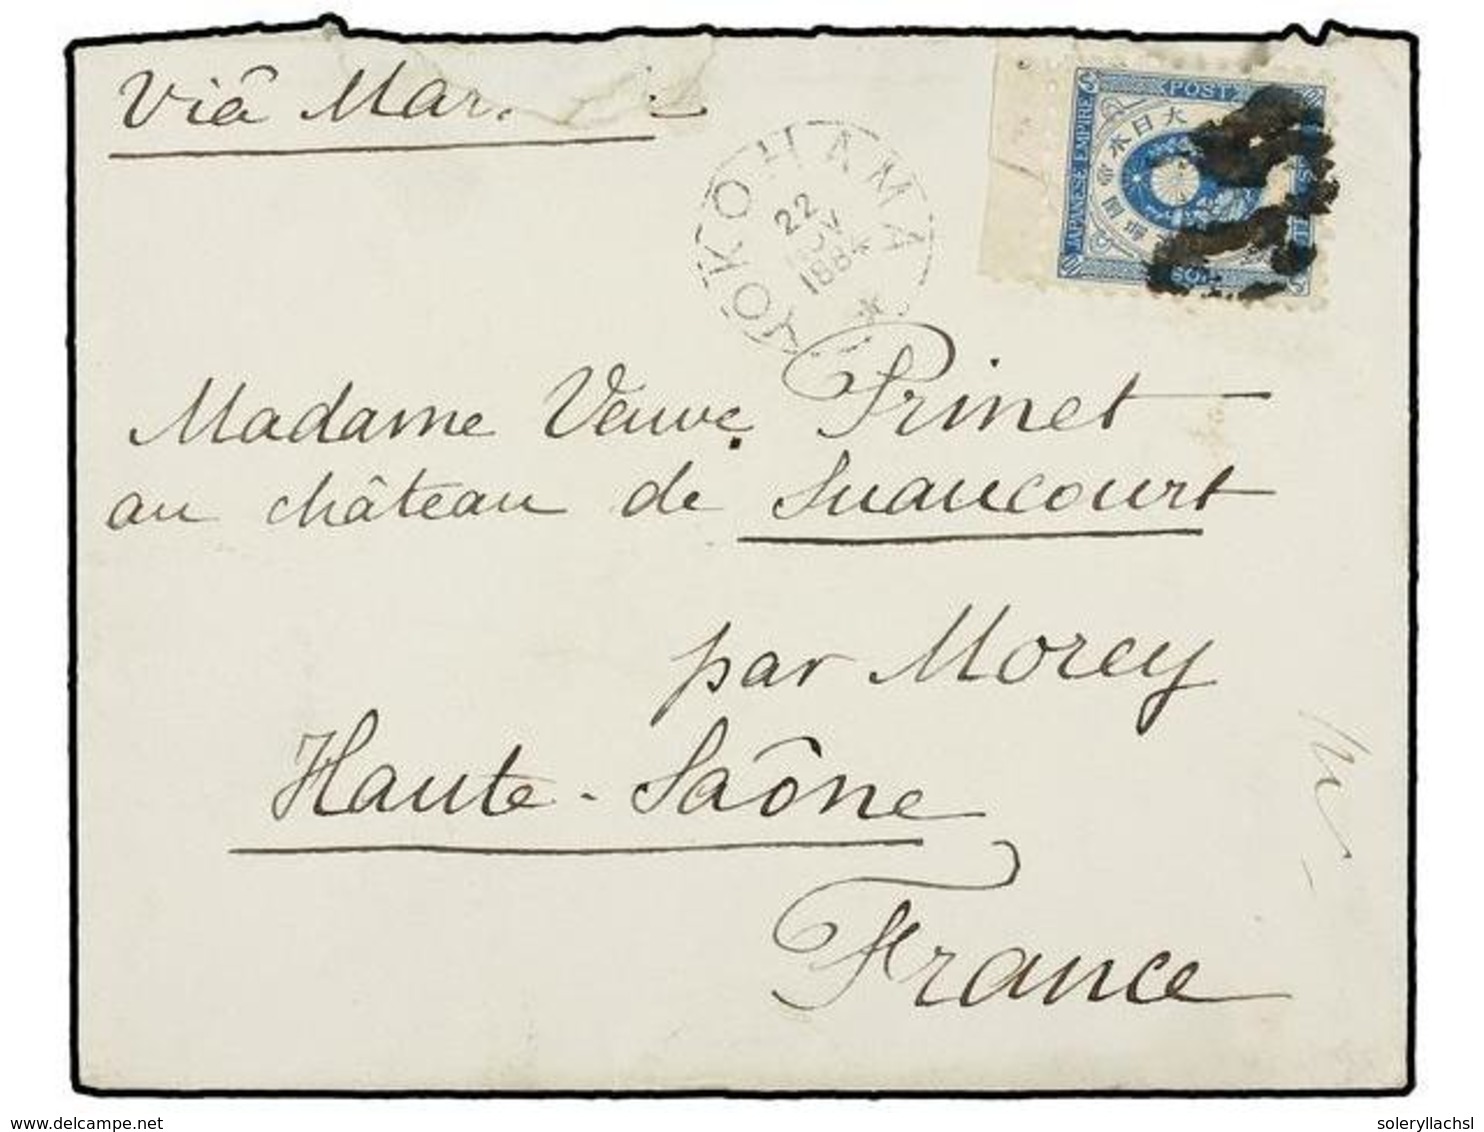 Viâ Mar
YOKOHAMA
22
NOV
1884
POST
JAPANESE EMPIRE
大日本帝国
SEN
Madame Veuve Prinet
au château de Suaucourt
par Morey
Haute-Saône
France
soleryllachsl